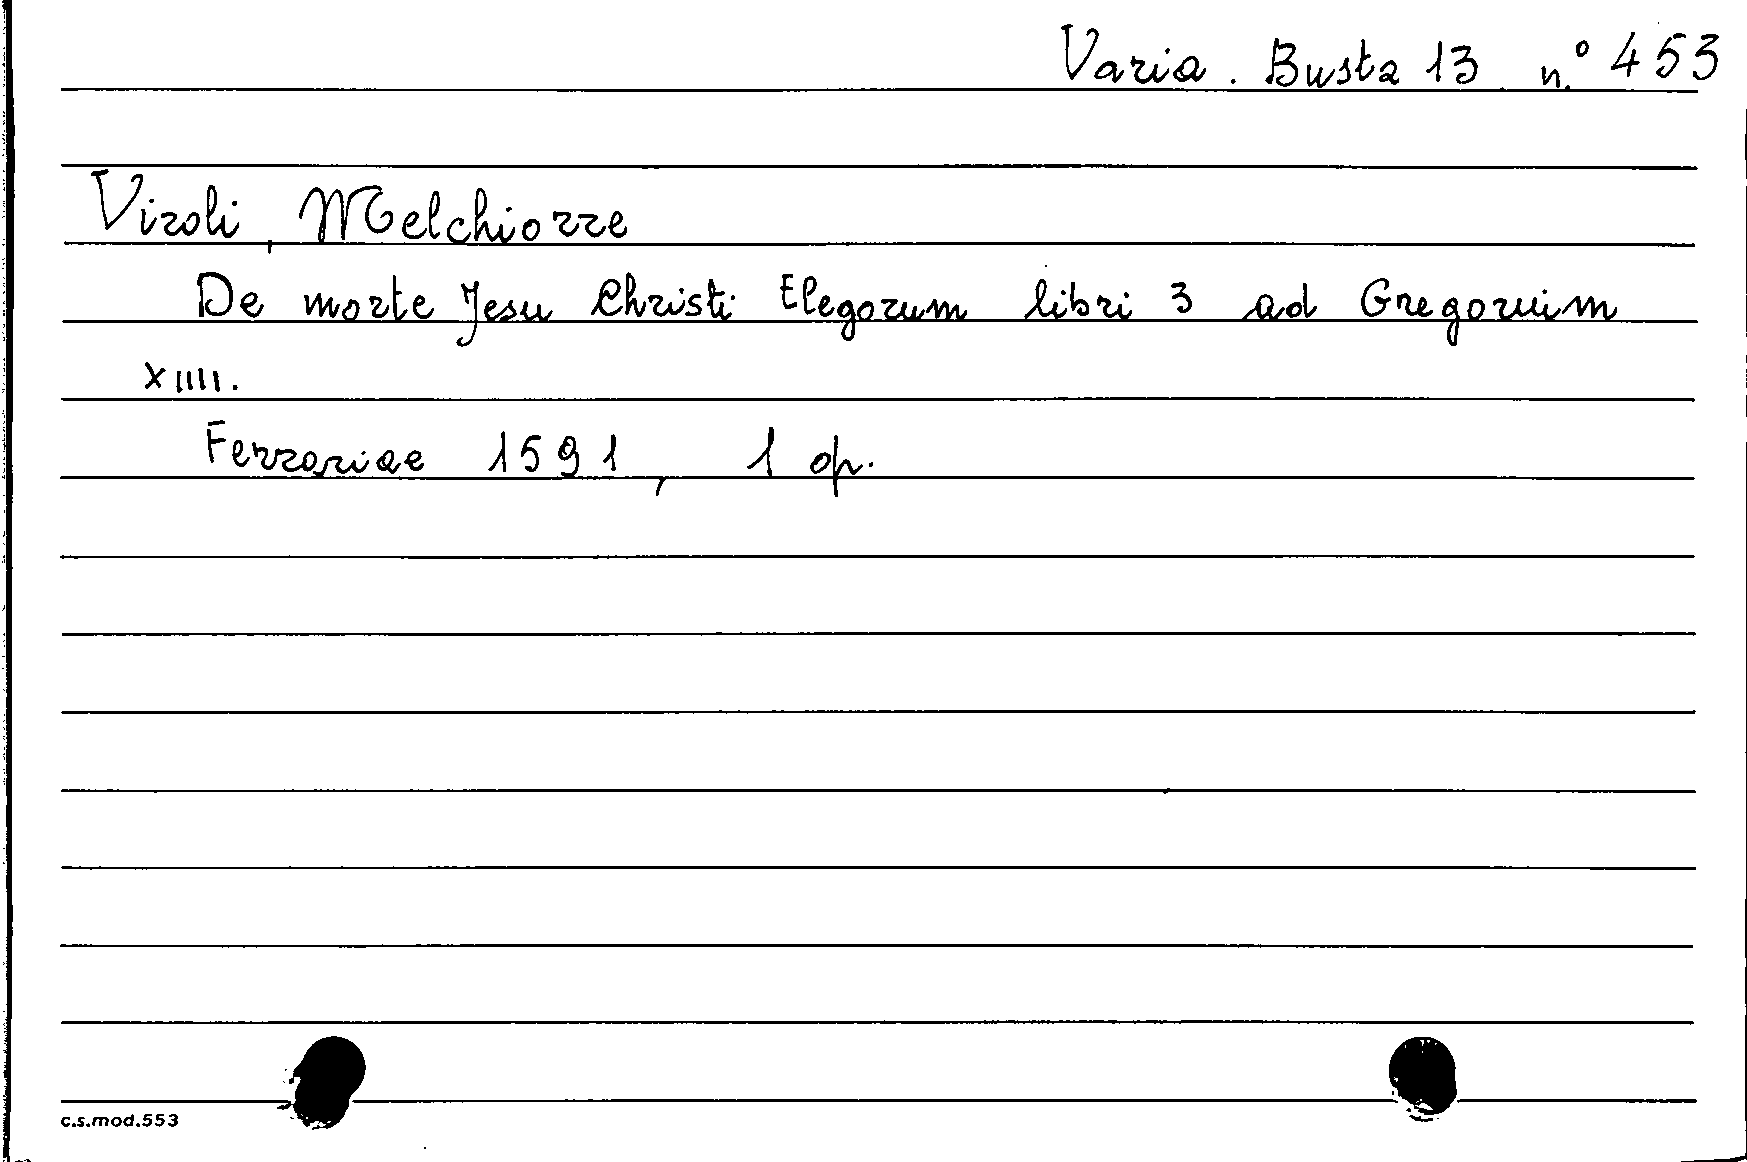 Varia. Busta 13 n.° 453
Viroli, Melchiorre
De morte Jesu Christi Elegorum libri 3 ad Gregorium
XIIII.
Ferrariae 1591, 1 op.
c.s.mod.553